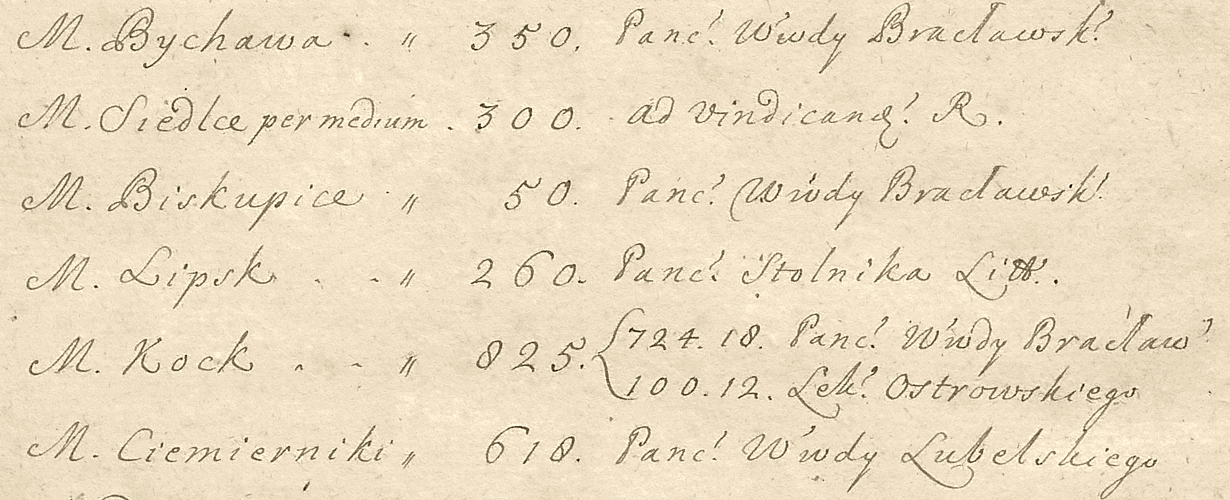 M. Bychawa . " 350. Panc! Wwdy Bracławsk!
M. Siedlce per medium . 300. ad vindicand! R.
M. Biskupice " 50. Panc! Wwdy Bracławsk!
M. Lipsk . . " 260. Panc! Stolnika Litt.
M. Kock . . " 825. { 724. 18. Panc! Wwdy Bracław!
100. 12. Lek! Ostrowskiego
M. Ciemierniki " 618. Panc! Wwdy Lubelskiego